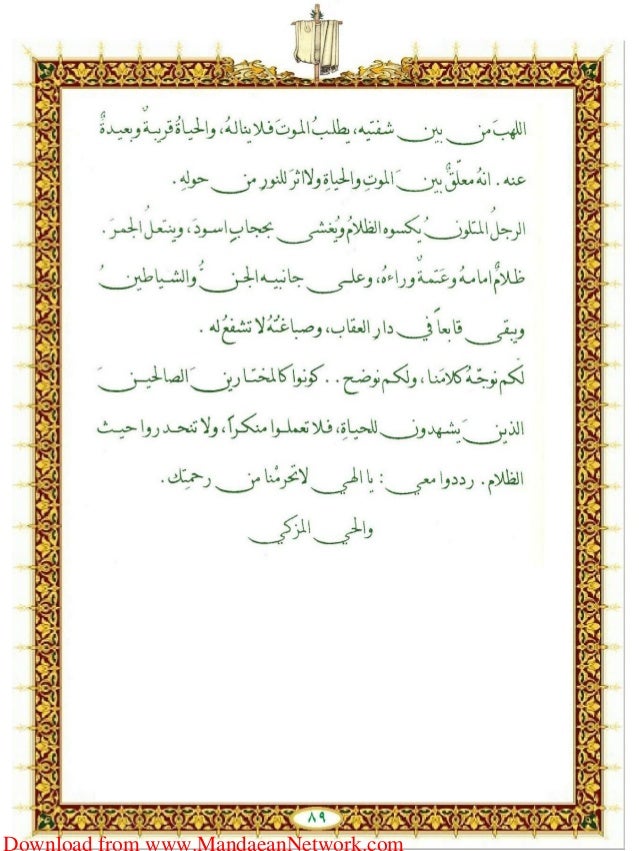 اللهبَ من بين شفتيه، يطلبُ الموتَ فلا ينالهُ، والحياةُ قريبةٌ وبعيدةٌ
عنه . انهُ معلّقٌ بين الموتِ والحياةِ ولا اثرَ للنورِ من حولهِ .
الرجلُ المتلون يُكسوه الظلامُ ويُغشى بحجابٍ اسودَ، وينتعلُ الجمرَ .
ظلامٌ امامهُ وعَتمةٌ وراءهُ، وعلى جانبيه الجنُّ والشياطينُ
ويبقى قابعاً في دارِ العقاب، وصباغتُهُ لا تشفعُ له .
لكم نوجّهُ كلامَنا، ولكم نوضح . . كونوا كالمختارين الصالحين
الذين يَشهدون للحياةِ، فلا تعملوا منكراً، ولا تنحدروا حيث
الظلام . رددوا معي : يا الهي لا تحرمْنا من رحمتِك .
والحي المزكي
٨٩
Download from www.MandaeanNetwork.com